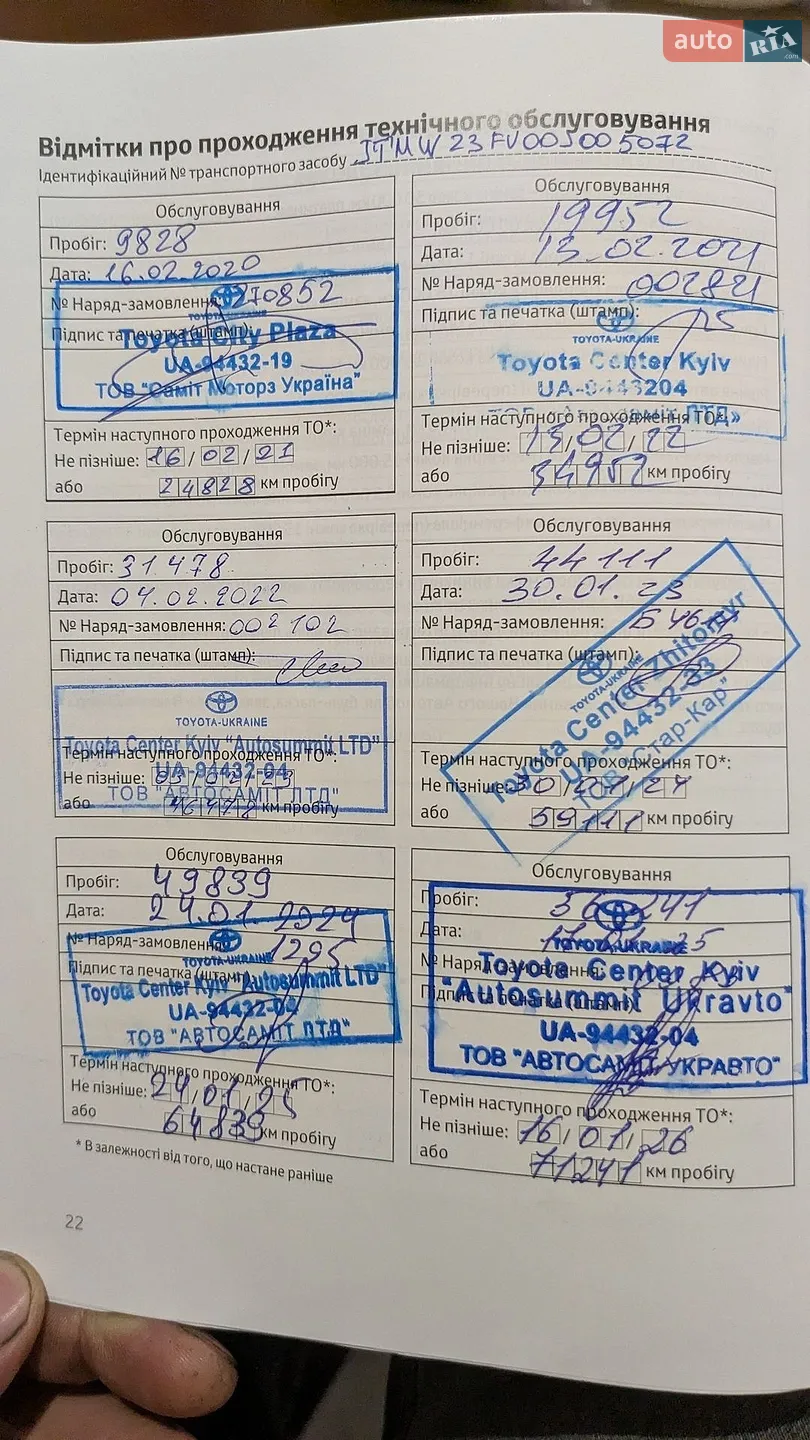 auto RIA .com
Відмітки про проходження технічного обслуговування
Ідентифікаційний № транспортного засобу JTMW23FV00J005072
Обслуговування
Пробіг: 9828
Дата: 16.02.2020
№ Наряд-замовлення: 270852
Підпис та печатка (штамп):
TOYOTA-UKRAINE
Toyota City Plaza
UA-94432-19
ТОВ "Саміт Моторз Україна"
Термін наступного проходження ТО*:
Не пізніше: 16/02/21
або 24828 км пробігу
Обслуговування
Пробіг: 19952
Дата: 13.02.2021
№ Наряд-замовлення: 002821
Підпис та печатка (штамп):
TOYOTA-UKRAINE
Toyota Center Kyiv
UA-9443204
ЛТД»
Термін наступного проходження ТО*:
Не пізніше: 13/02/22
або 34952 км пробігу
Обслуговування
Пробіг: 31478
Дата: 04.02.2022
№ Наряд-замовлення: 002102
Підпис та печатка (штамп):
TOYOTA-UKRAINE
Toyota Center Kyiv "Autosummit LTD"
UA-94432-04
ТОВ "АВТОСАМІТ ЛТД"
Термін наступного проходження ТО*:
Не пізніше: 03/02/23
або 46478 км пробігу
Обслуговування
Пробіг: 44111
Дата: 30.01.23
№ Наряд-замовлення:
Підпис та печатка (штамп):
TOYOTA-UKRAINE
Toyota Center Zhitomyr
UA-94432-33
ТОВ "Стар-Кар"
Термін наступного проходження ТО*:
Не пізніше: 30/01/24
або 59111 км пробігу
Обслуговування
Пробіг: 49839
Дата: 24.01.2024
№ Наряд-замовлення: 1295
Підпис та печатка (штамп):
TOYOTA-UKRAINE
Toyota Center Kyiv "Autosummit LTD"
UA-94432-04
ТОВ "АВТОСАМІТ ЛТД"
Термін наступного проходження ТО*:
Не пізніше: 24/01/25
або 64839 км пробігу
Обслуговування
Пробіг:
Дата:
№ Наряд-замовлення:
Підпис та печатка (штамп):
TOYOTA-UKRAINE
Toyota Center Kyiv
"Autosummit Ukravto"
UA-94432-04
ТОВ "АВТОСАМІТ УКРАВТО"
Термін наступного проходження ТО*:
Не пізніше: 16/01/26
або 71241 км пробігу
* В залежності від того, що настане раніше
22